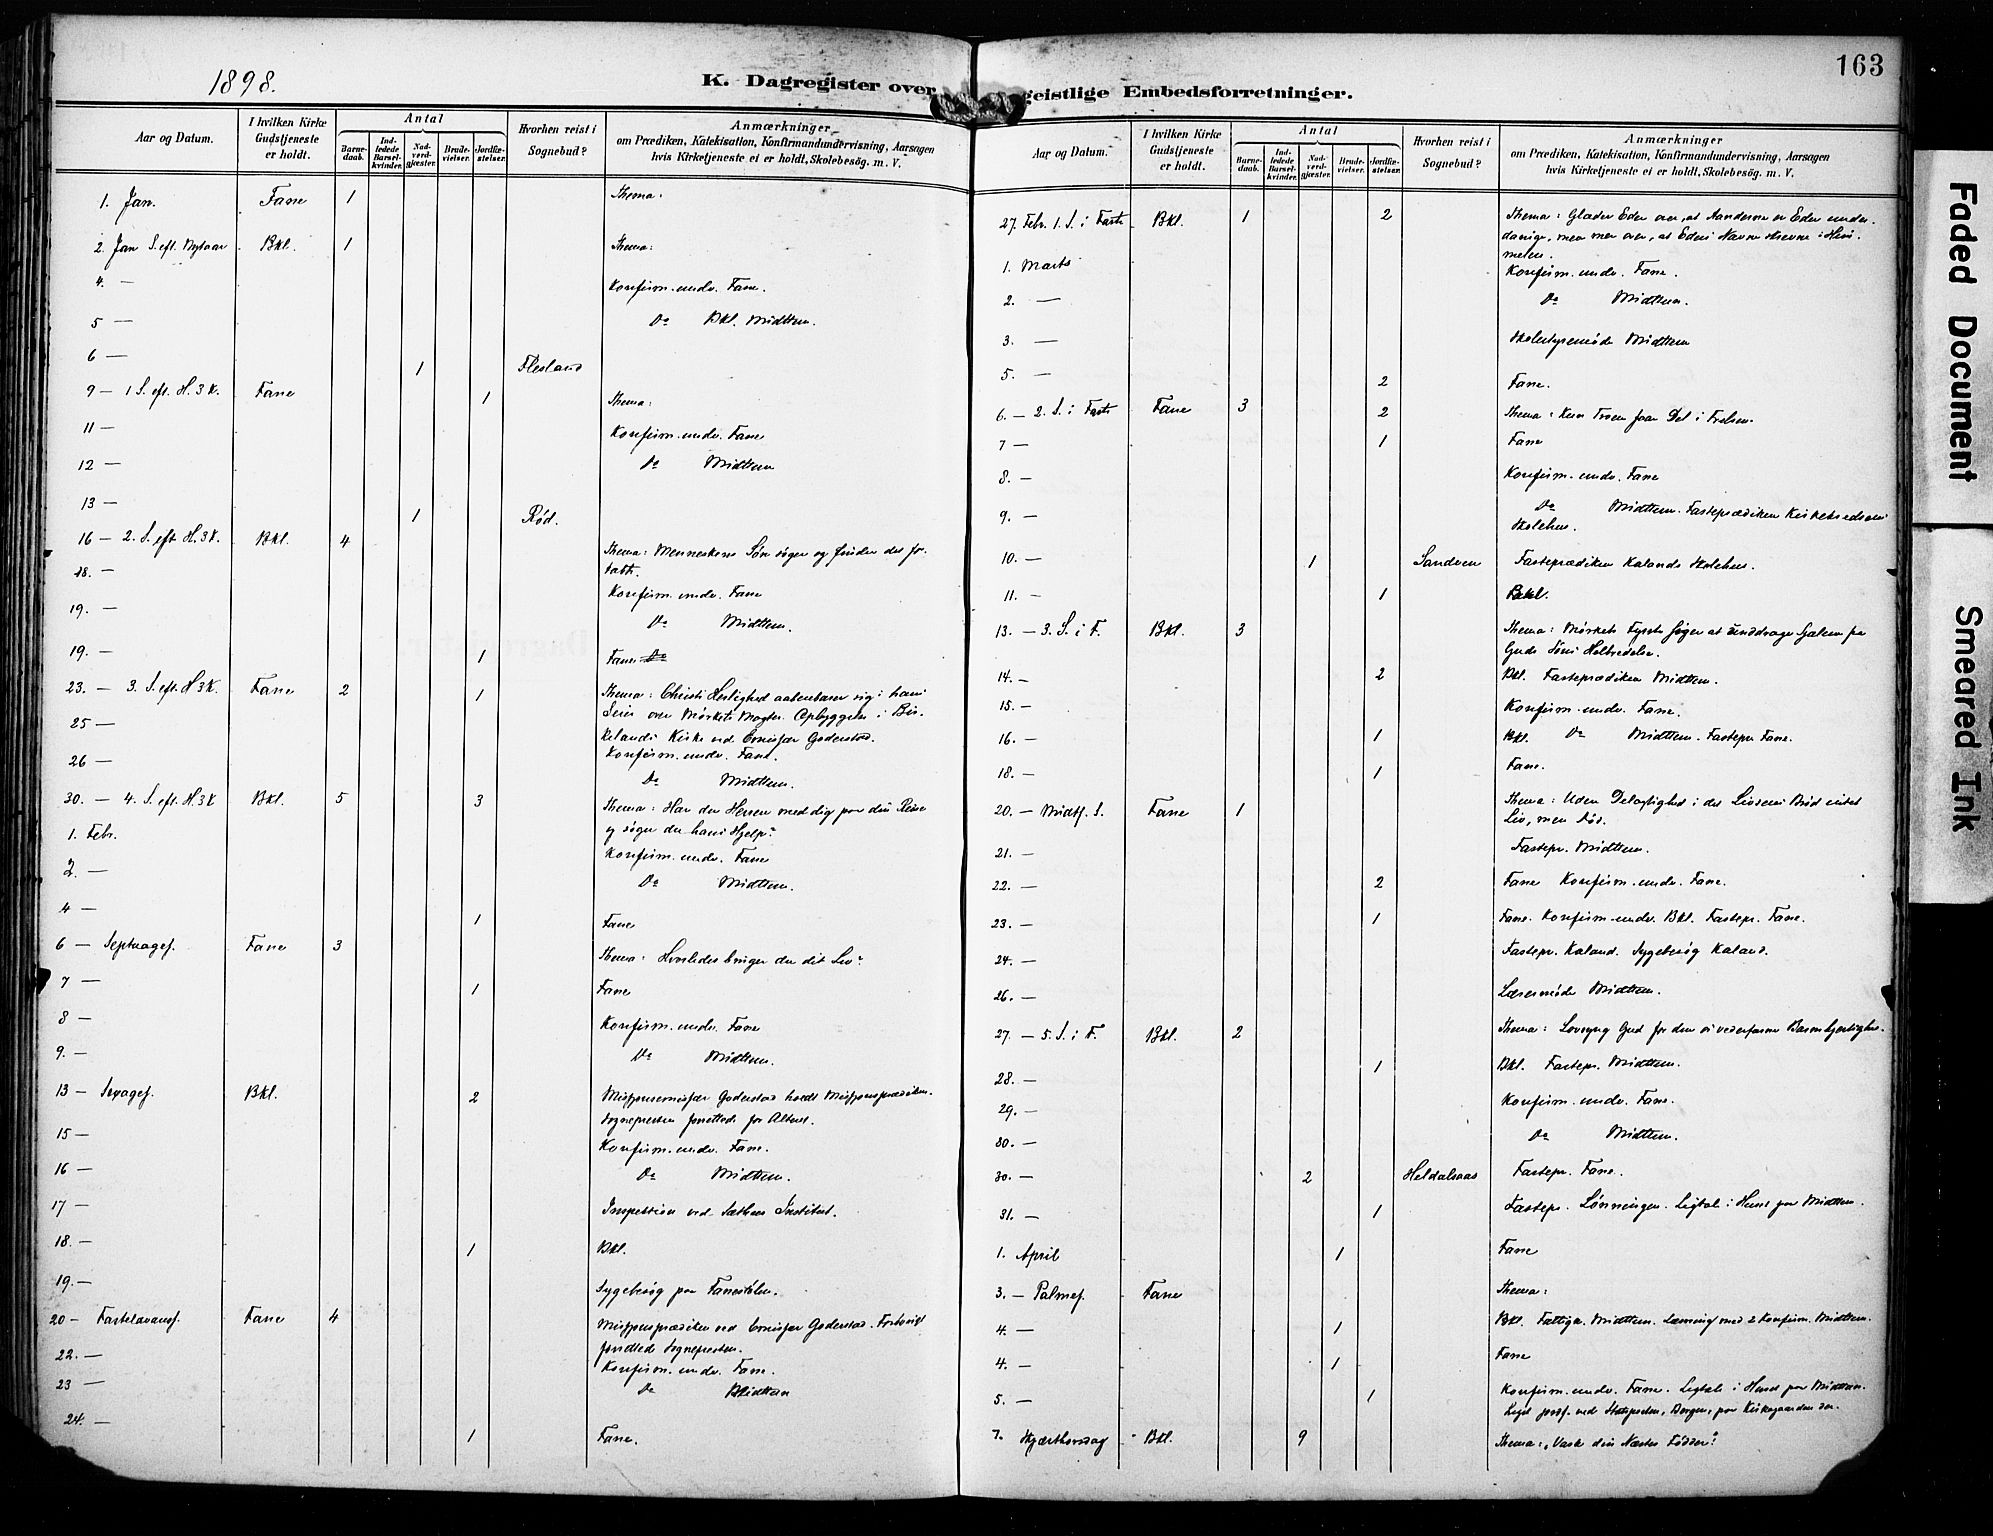 163
1898.
K. Dagregister over geistlige Embedsforretninger.
Aar og Datum. I hvilken Kirke Gudstjeneste er holdt. Antal Barnedaab. Indledede Barselkvinder. Nadverdgjæster. Brudevielser. Jordfæstelser. Hvorhen reist i Sognebud? Anmærkninger om Prædiken, Katekisation, Konfirmandundervisning, Aarsagen hvis Kirketjeneste ei er holdt, Skolebesög. m. V.
1. Jan. Fane 1 Thema:
2. Jan S. eft. Nytaar Bkl. 1 Thema:
4. — Konfirm. underv. Fane.
5 — Do Bkl. Midttun.
6 — 1 Flesland
9 — 1 S. eft. H. 3 K. Fane 1 Thema:
11 — Konfirm. underv. Fane
12 — Do Midttun
13 — 1 Rød.
16 — 2. S. eft. H. 3 K. Bkl. 4 Thema: Menneskens Søn søger og finder det for-
tabte.
18. — Konfirm. underv. Fane
19. — Do Midttun.
19. — 1 Fane
23. — 3. S. eft. H 3 K. Fane 2 1 Thema: Christi Herlighed aabenbarer sig i hans
Seier over Mørkets Magter. Opbyggelse i Bir-
25 — kelands Kirke ved Goderstad.
Konfirm. underv. Fane.
26 — Do Midttun.
30. — 4. S. eft. H. 3 K Bkl. 5 3 Thema: Har du Herren med dig paa din Reise
og søger du hans Hjelp?
1. Febr. Konfirm. underv. Fane
2. — Do Midttun.
4 — 1 Fane
6 — Septuages. Fane 3 Thema: Hvorledes bruger du dit Liv?
7 — 1 Fane
8 — Konfirm. underv. Fane
9. — Do Midttun.
13 — Sexages. Bkl. 2 Goderstad holdt Missionsprædiken.
Sognepresten forrettede for Alteret.
15 — Konfirm. underv. Fane.
16 — Do Midttun.
17 — Inspektion ved Institut.
18. — 1 Bkl.
19. — Sygebesøg paa
20 — Fastelavnss. Fane 4 Missionsprædiken ved Goderstad.
forrettede Sognepresten.
22. — Konfirm. underv. Fane.
23 — Do Midttun
24. — 1 Fane.
Aar og Datum. I hvilken Kirke Gudstjeneste er holdt. Antal Barnedaab. Indledede Barselkvinder. Nadverdgjæster. Brudevielser. Jordfæstelser. Hvorhen reist i Sognebud? Anmærkninger om Prædiken, Katekisation, Konfirmandundervisning, Aarsagen hvis Kirketjeneste ei er holdt, Skolebesög. m. V.
27. Febr. 1. S. i Faste Bkl. 1 2 Thema: Glæder Eder over, at Aanderne er Eder under-
danige, men mer over, at Eders Navne skrevne i Him-
melen.
1. Marts Konfirm. underv. Fane.
2. — Do Midttun.
3. — Skolestyremøde Midttun
5. — 2 Fane.
6. — 2. S. i Faste Fane 3 2 Thema: Kun Troen faar Del i Frelsen.
7 — 1 Fane
8. — Konfirm. underv. Fane
9. — Do Midttun. Fasteprædiken
Skolehus.
10. — 1 Sandven Fasteprædiken Kalands Skolehus.
11. — 1 Bkl.
13. — 3. S. i F. Bkl. 3 Thema: Mørkets Fyrste søger at unddrage Sjælen fra
Guds Søns Helbredelse.
14. — 2 Bkl. Fasteprædiken Midttun.
15. — Konfirm. underv. Fane.
16. — 1 Bkl. Do Midttun. Fastepr. Fane.
18. — 1 Fane.
20. — Midtf. S. Fane 1 Thema: Uden Delagtighed i det Livsens Brød intet
Liv, men Død.
21. — Fastepr. Midttun.
22. — 2 Fane Konfirm. underv. Fane.
23. — 1 Fane. Konfirm. underv. Bkl. Fastepr. Fane.
24. — Fastepr. Kaland. Sygebesøg Kaland.
26. — Lærermøde Midttun.
27. — 5. S. i F. Bkl. 2 Thema: Lovsyng Gud for den os vederfarne Barmhjertighed.
28. — 1 Bkl. Fastepr. Midttun.
29. — Konfirm. underv. Fane.
30. — Do Midttun.
30. — 2 Heldalsaas Fastepr. Fane.
31. — 1 Fastepr. Lønningen. Ligtale i Huset paa Midttun.
1. April 1 Fane
3. — Palmes. Fane Thema:
4. — 1 Bkl. Fattigk. Midttun. Læsning med 2 Konfirm. Midttun.
4. — 1 Fane
5. — 1 Konfirm. underv. Fane. Ligtale i Huset paa Midttun.
Liget jordf. ved Bergen, paa Kirkegaarden der.
7. Skjærthorsdag Bkl. 9 Thema: „Vask din Næstes Fødder!"
Faded Document
Smeared Ink